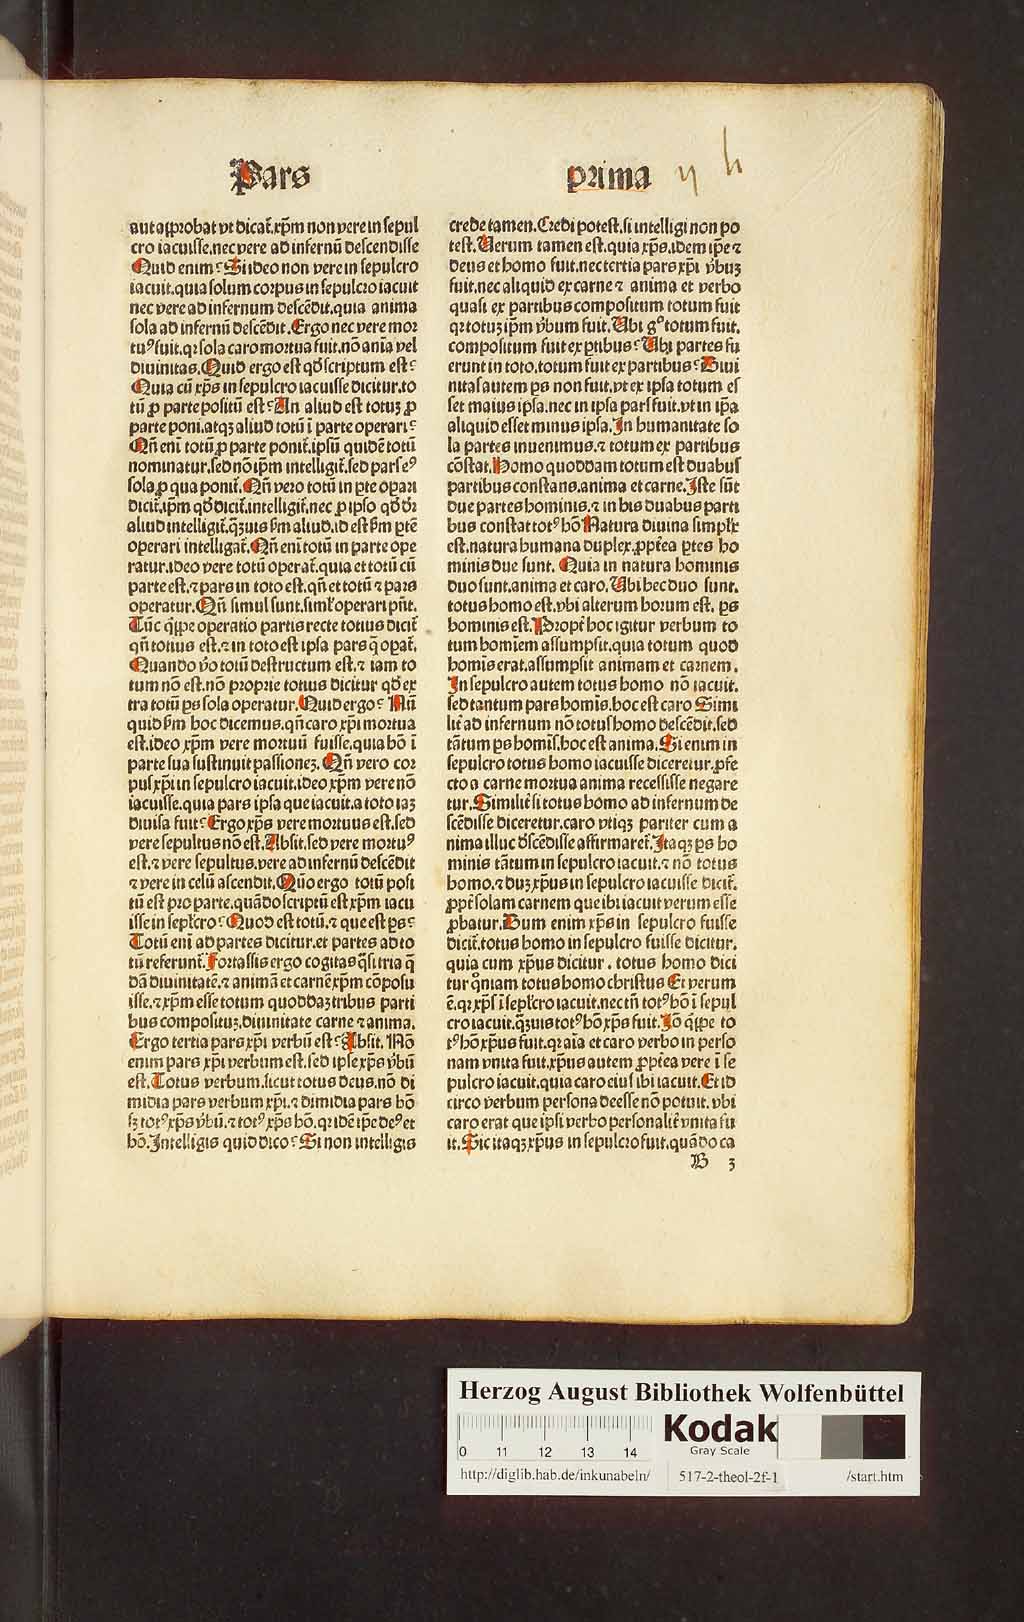 Pars prima
aut approbat vt dicat̄.xp̄m non vere in sepul
cro iacuisse.nec vere ad infernū descendisse
Quid enim? Si ideo non vere in sepulcro
iacuit.quia solum corpus in sepulcro iacuit
nec vere ad infernum descēdit.quia anima
sola ad infernū descēdit.Ergo nec vere mor
tuꝰ fuit.qꝛ sola caro mortua fuit.nō aīa vel
diuinitas.Quid ergo est qd̓ scriptum est?
Quia cū xp̄s in sepulcro iacuisse dicitur.to
tū ꝓ parte positū est? An aliud est totuꝫ ꝓ
parte poni.atqꝫ aliud totū ī parte operari?
Qn̄ enī totū ꝓ parte ponit̄.ipsū quidē totū
nominatur.sed nō ip̄m intelligit̄.sed pars eꝰ
sola ꝓ qua ponit̄.Qn̄ vero totū in ꝑte oꝑari
dicit̄.ip̄m qd̓ dicit̄.intelligit̄.nec ꝓ ipso qd̓ dr̄
aliud intelligit̄.qꝫuis ẜm aliud.id est ẜm ꝑtē
operari intelligat̄.Qn̄ enī totū in parte ope
ratur.ideo vere totū operat̄.quia et totū cū
parte est.⁊ pars in toto est.qn̄ et totū ⁊ pars
operatur.Qn̄ simul sunt.siml̓ operari pn̄t.
Tūc qͥppe operatio partis recte totius dicit̄
qn̄ totius est.⁊ in toto est ipsa pars q̄ oꝑat̄.
Quando v̓o totū destructum est.⁊ iam to
tum nō est.nō proprie totius dicitur qd̓ ex
tra totū ꝑs sola operatur.Quid ergo? Nū
quid ẜm hoc dicemus.qn̄ caro xp̄i mortua
est.ideo xp̄m vere mortuū fuisse.quia hō ī
parte sua sustinuit passioneꝫ.Qn̄ vero cor
pus xp̄i in sepulcro iacuit.ideo xp̄m vere nō
iacuisse.quia pars ipsa que iacuit.a toto iaꝫ
diuisa fuit? Ergo xp̄s vere mortuus est.sed
vere sepultus nō est.Absit.sed vere mortuꝰ
est.⁊ vere sepultus.vere ad infernū descēdit
⁊ vere in celū ascendit.Quo ergo totū posi
tū est pro parte.quādo scriptū est xp̄m iacu
isse in sepl̓cro? Quod est totū.⁊ que est ꝑs?
Totū enī ad partes dicitur.et partes ad to
tū referunt̄.Fortassis ergo cogitas qͣsi tria q̄
dā diuinitatē.⁊ animā et carnē xp̄m cōposu
isse.⁊ xp̄m esse totum quoddaꝫ tribus parti
bus compositꝫ.diuinitate carne ⁊ anima.
Ergo tertia pars xp̄i verbū est? Absit.Nō
enim pars xp̄i verbum est.sed ipse xp̄s v̓bū
est.Totus verbum.sicut totus deus.nō di
midia pars verbum xp̄i.⁊ dimidia pars hō
sꝫ totꝰ xp̄s v̓bū.⁊ totꝰ xp̄s hō.qꝛ idē ip̄e deꝰ et
hō.Intelligis quid dico? Si non intelligis
crede tamen.Credi potest.si intelligi non po
test.Verum tamen est.quia xp̄s.idem ip̄e ⁊
deus et homo fuit.nec tertia pars xp̄i v̓buꝫ
fuit.nec aliquid ex carne ⁊ anima et verbo
quasi ex partibus compositum totum fuit
qꝛ totuꝫ ip̄m v̓bum fuit.Ubi gͦ totum fuit.
compositum fuit ex ꝑtibus? Ubi partes fu
erunt in toto.totum fuit ex partibus? Diui
nitas autem ꝑs non fuit.vt ex ipsa totum es
set maius ipsa.nec in ipsa pars fuit.vt in ip̄a
aliquid esset minus ipsa.In humanitate so
la partes inuenimus.⁊ totum ex partibus
cōstat.Homo quoddam totum est duabus
partibus constans.anima et carne.Iste sūt
due partes hominis.⁊ in his duabus parti
bus constat totꝰ hō Natura diuina simplex
est.natura humana duplex.ꝓpt̓ea ꝑtes ho
minis due sunt. Quia in natura hominis
duo sunt.anima et caro.Ubi hec duo sunt.
totus homo est.vbi alterum horum est. ꝑs
hominis est.Propt̓ hoc igitur verbum to
tum homīem assumpsit.quia totum quod
homīs erat.assumpsit animam et carnem.
In sepulcro autem totus homo nō iacuit.
sed tantum pars homīs.hoc est caro Simi
lit̓ ad infernum nō totus homo descēdit.sed
tātum ꝑs homīs.hoc est anima.Si enim in
sepulcro totus homo iacuisse diceretur.ꝓfe
cto a carne mortua anima recessisse negare
tur.Similit̓ si totus homo ad infernum de
scēdisse diceretur.caro vtiqꝫ pariter cum a
nima illuc d̓scēdisse affirmaret̄.Itaqꝫ ꝑs ho
minis tātum in sepulcro iacuit.⁊ nō totus
homo.⁊ duꝫ xp̄us in sepulcro iacuisse dicit̄.
ꝓpt̓ solam carnem que ibi iacuit verum esse
ꝓbatur.Dum enim xp̄s in sepulcro fuisse
dicit̄.totus homo in sepulcro fuisse dicitur.
quia cum xp̄us dicitur. totus homo dici
tur qͦniam totus homo christus Et verum
ē.qꝛ xp̄s ī sepl̓cro iacuit.nec tn̄ totꝰ hō ī sepul
cro iacuit.qꝫuis totꝰ hō xp̄s fuit.Iō qͥppe to
tꝰ hō xp̄us fuit.qꝛ aīa et caro verbo in perso
nam vnita fuit.xp̄us autem ꝓpt̓ea vere ī se
pulcro iacuit.quia caro eius ibi iacuit.Et id
circo verbum persona deesse nō potuit.vbi
caro erat que ipsi verbo personalit̓ vnita fu
it.Sic itaqꝫ xp̄us in sepulcro fuit.quādo ca
B 3
Herzog August Bibliothek Wolfenbüttel
Kodak
Gray Scale
0 11 12 13 14
http://diglib.hab.de/inkunabeln/ 517-2-theol-2f-1 /start.htm